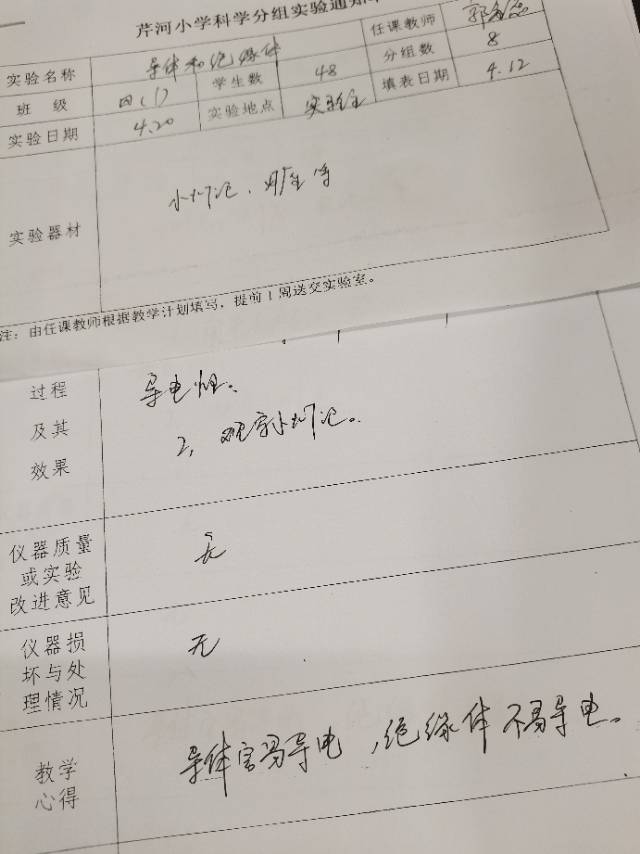 芹河小学科学分组实验通知
任课教师
实验名称 导体和绝缘体 分组数 8
班 级 四(1) 学生数 48 填表日期 4.12
实验日期 4.20 实验地点 实验室
实验器材 小灯泡、
注:由任课教师根据教学计划填写,提前1周送交实验室。
过程
及其
效果
导电性。
2、观察小灯泡。
仪器质量
或实验
改进意见
无
仪器损
坏与处
理情况
无
教学
心得
导体容易导电,绝缘体不易导电。